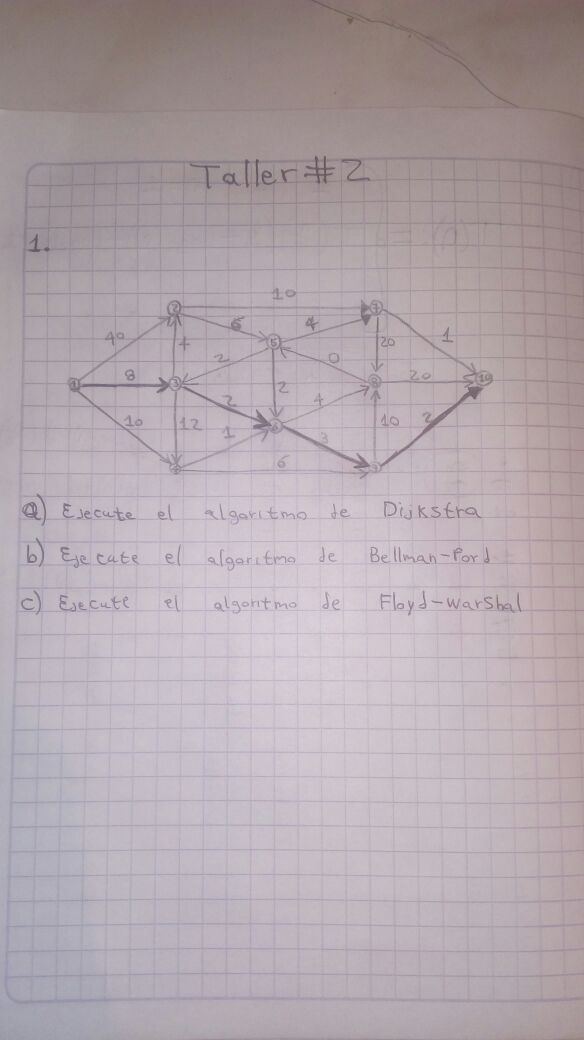 Taller # 2
1.
10
40 6 4 1
4 5 20
2 0
8 20
2 2 4
10 12 1 3 10 2
6
a) Ejecute el algoritmo de Dijkstra
b) Ejecute el algoritmo de Bellman-Ford
c) Ejecute el algoritmo de Floyd-Warshal